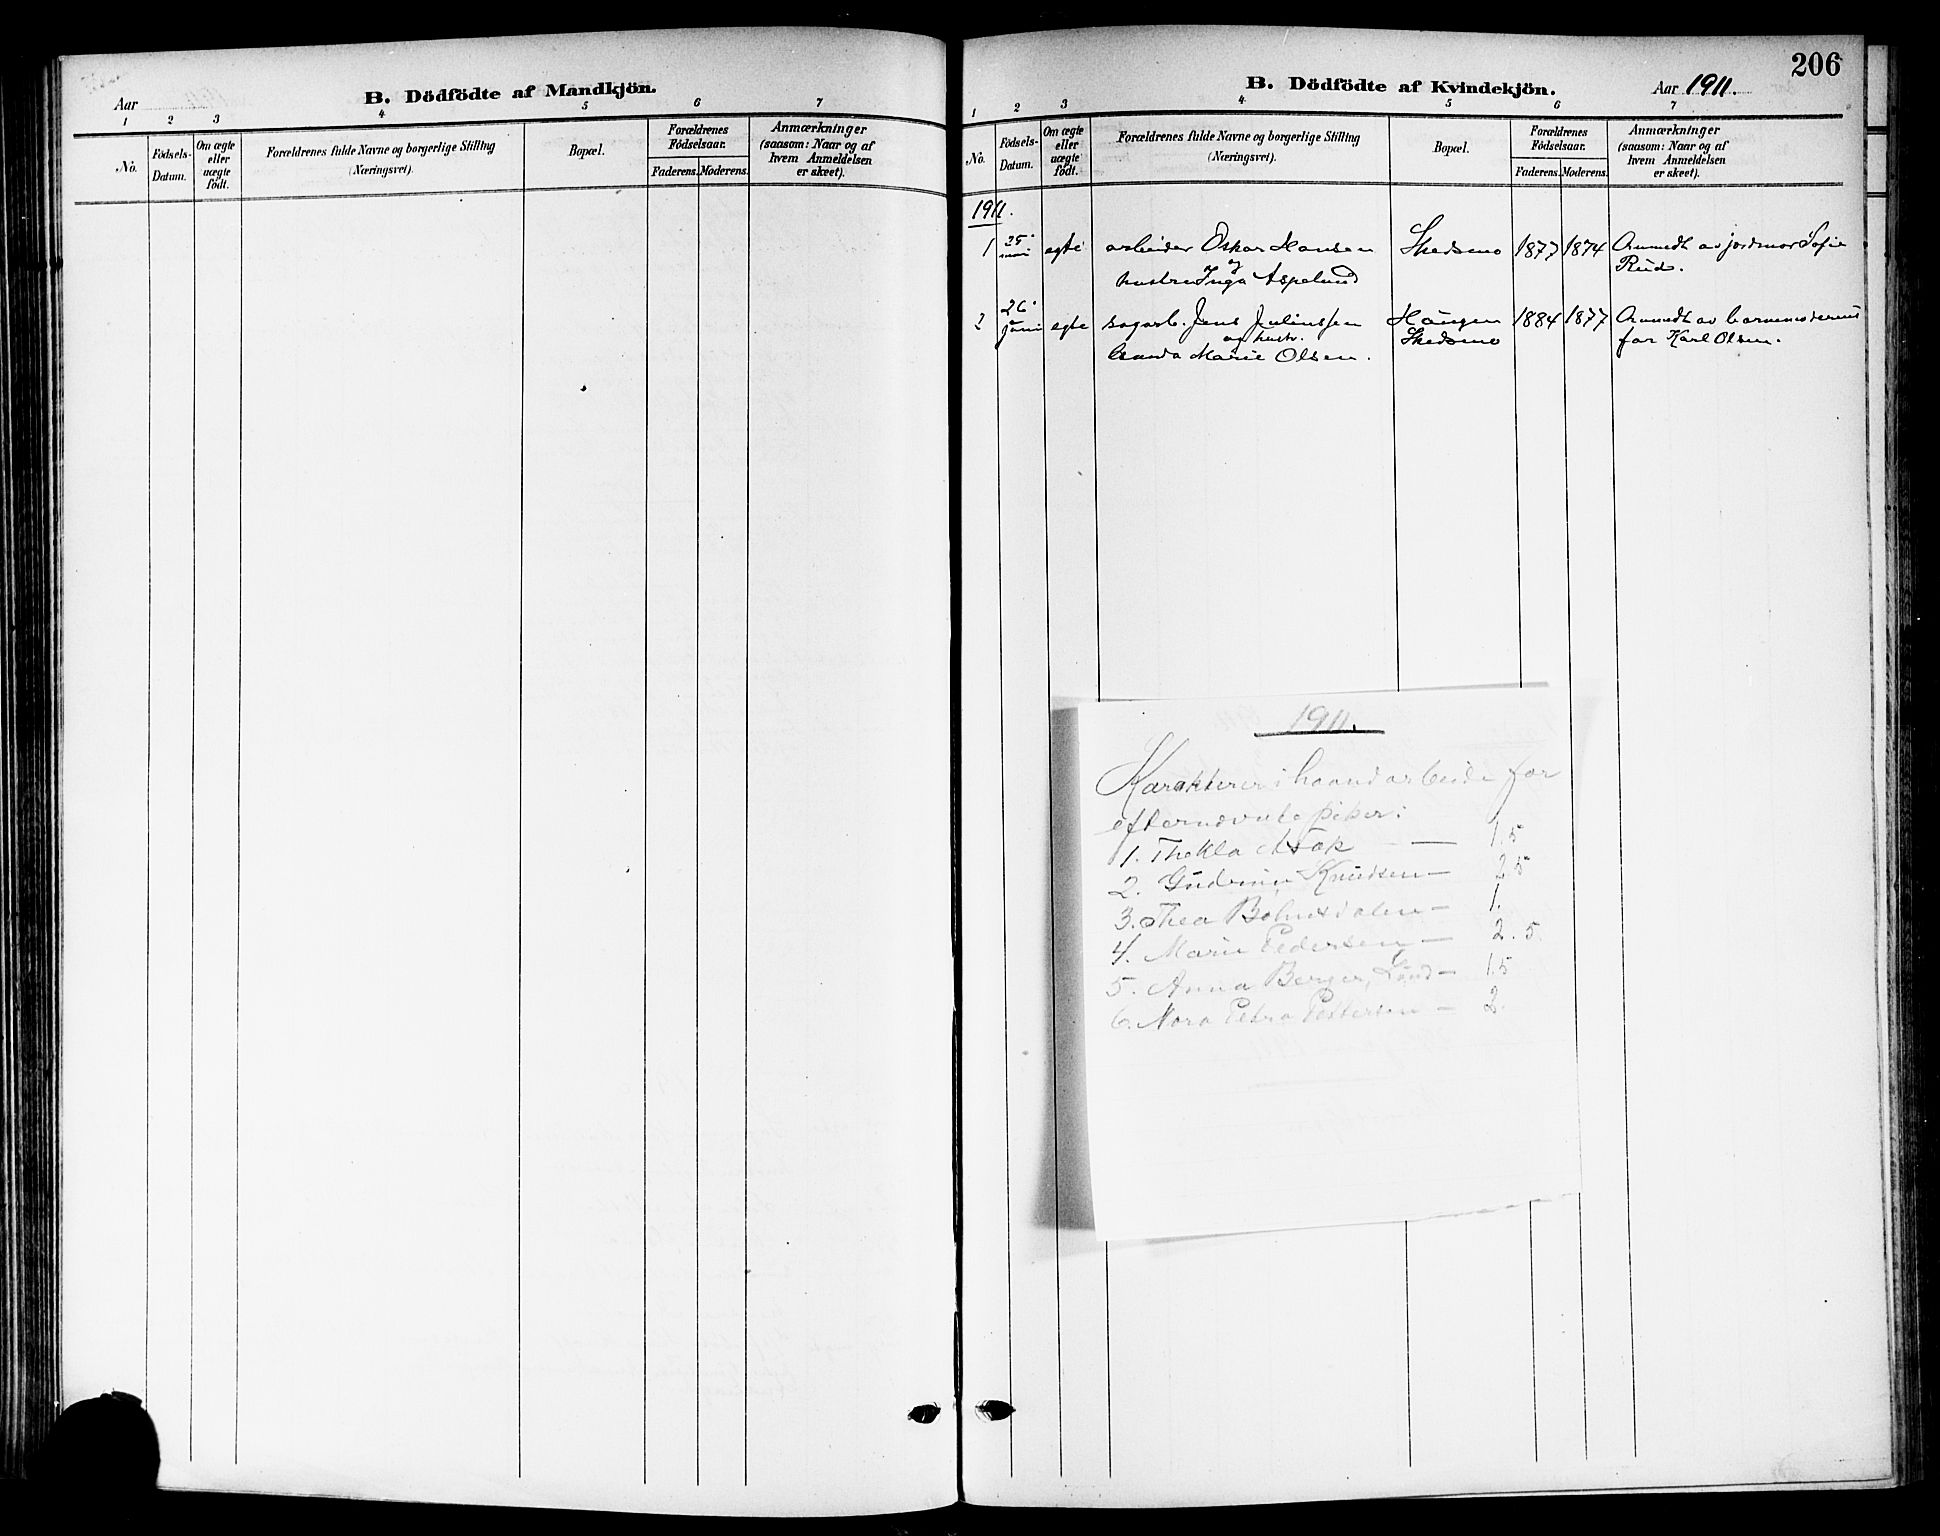 B. Dödfödte af Mandkjön.
Aar
1 2 3 4 5 6 7
No.
Födsels-Datum.
Om ægte eller uægte födt.
Forældrenes fulde Navne og borgerlige Stilling (Næringsvei).
Bopæl.
Forældrenes Födselsaar.
Faderens. Moderens.
Anmærkninger (saasom: Naar og af hvem Anmeldelsen er skeet).
206
B. Dödfödte af Kvindekjön.
Aar 1911.
1 2 3 4 5 6 7
No.
Födsels-Datum.
Om ægte eller uægte födt.
Forældrenes fulde Navne og borgerlige Stilling (Næringsvei).
Bopæl.
Forældrenes Födselsaar.
Faderens. Moderens.
Anmærkninger (saasom: Naar og af hvem Anmeldelsen er skeet).
1911.
1 25. mai egte arbeider Oskar Hansen Skedsmo 1877 1874 Anmedt av jordmor Sofie
og
hustru Inga Aspelund Rud.
2 26. juni egte sagarb. Jens Juliussen 1884 1877 Anmedt av barnemoderens
og hustr. Skedsmo far Karl Olsen.
Marie Olsen.
1911.
Karakterer i haandarbeide for
efternævnte piker:
1. Thekla Asak — 1.5
2. Gudrun Knudsen — 2.5
3. Thea — 1.
4. Marie Pedersen — 2.5.
5. Anna Berger, Lund — 1.5
6. Nora Petra Pettersen — 2.